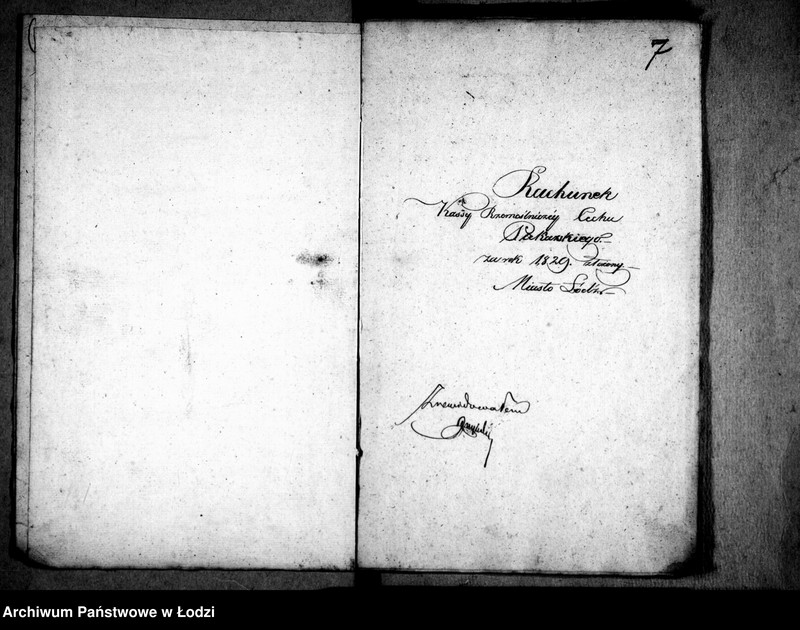 7
Rachunek
Kassy Rzemieślniczéy Cechu
Piekarskiego
za rok 1829. złożony
Miasto Łódź
Zrewidowałem
Archiwum Państwowe w Łodzi